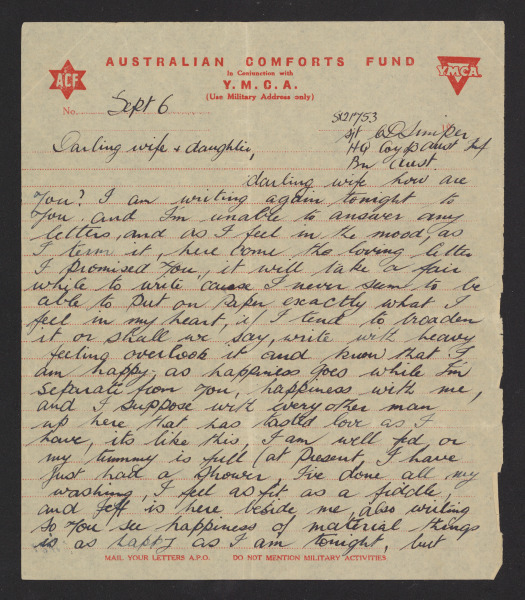 AUSTRALIAN COMFORTS FUND
In Conjunction with
Y. M. C. A.
(Use Military Address only)
ACF
YMCA
No. Sept 6
Sgt
HQ Coy Aust Inf
Bn Aust.
Darling wife & daughter,
darling wife how are
you? I am writing again tonight to
you and I'm unable to answer any
letters, and as I feel in the mood, as
I term it, here come the loving letter
I promised you, it will take a fair
while to write cause I never seem to be
able to put on paper exactly what I
feel in my heart, if I tend to broaden
it or shall we say, write with heavy
feeling overlook it and know that I
am happy, as happiness goes while I'm
separate from you, happiness with me,
and I suppose with every other man
up here that has tasted love as I
have, its like this, I am well fed or
my tummy is full (at present, I have
just had a shower I've done all my
washing, I feel as fit as a fiddle,
and Jeff is here beside me, also writing
so you see happiness of material things
is as happy as I am tonight, but
MAIL YOUR LETTERS A.P.O. DO NOT MENTION MILITARY ACTIVITIES